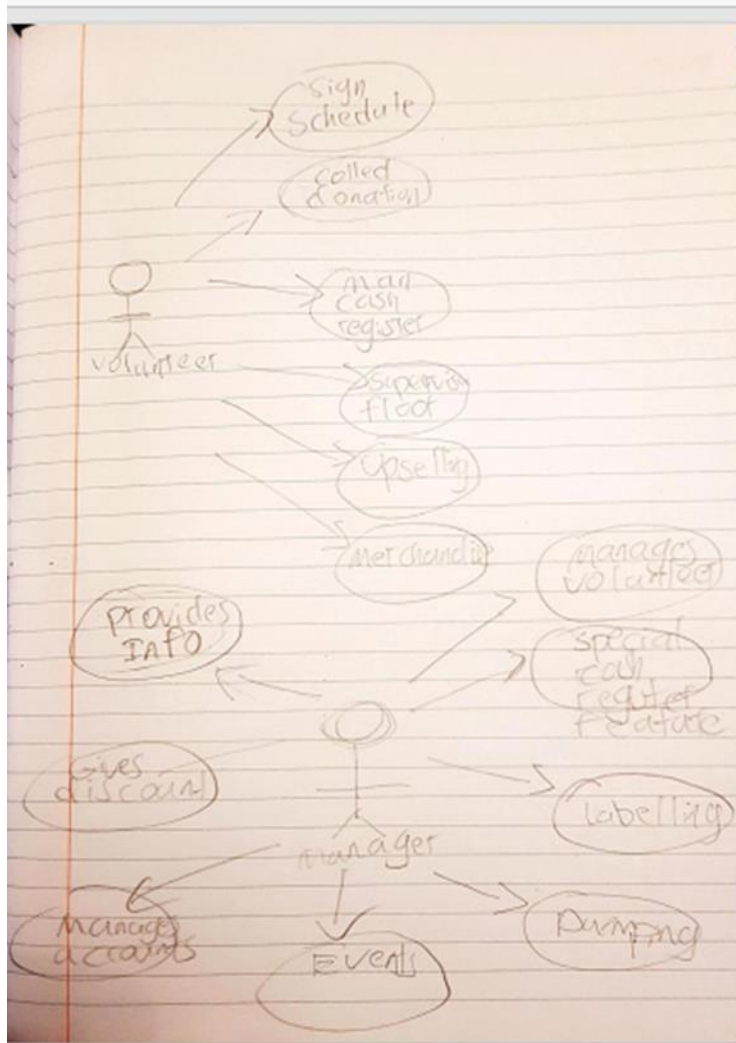 sign
schedule
colled
donation
man
cash
register
volunteer
supervise
floor
upselling
Merchandise
manages
volunteer
provides
Info
special
cash
register
feature
Gives
discount
labelling
manager
Manages
accounts
Events
Dumping